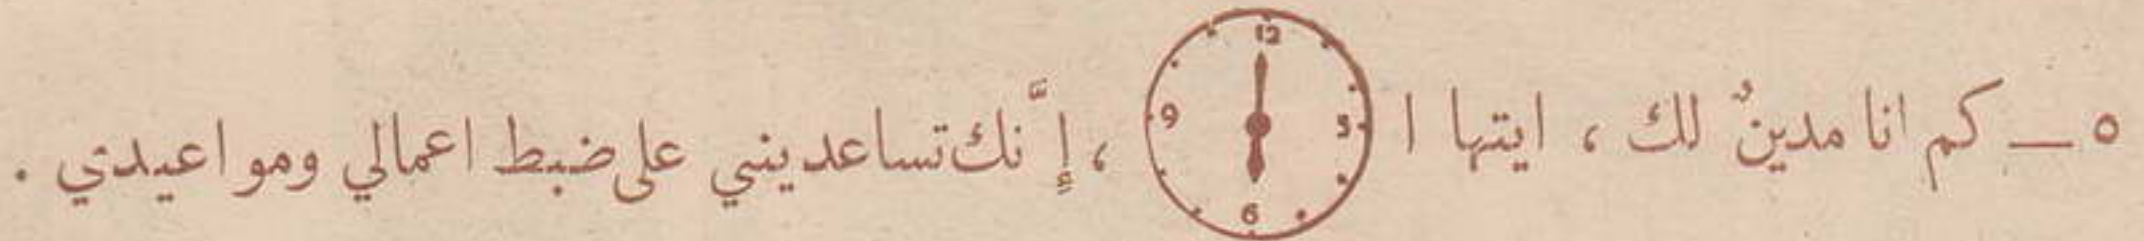 ٥ — كم انا مدينٌ لك ، ايتها ا 12 3 6 9 ، إِنَّك تساعديني على ضبط اعمالي ومواعيدي .